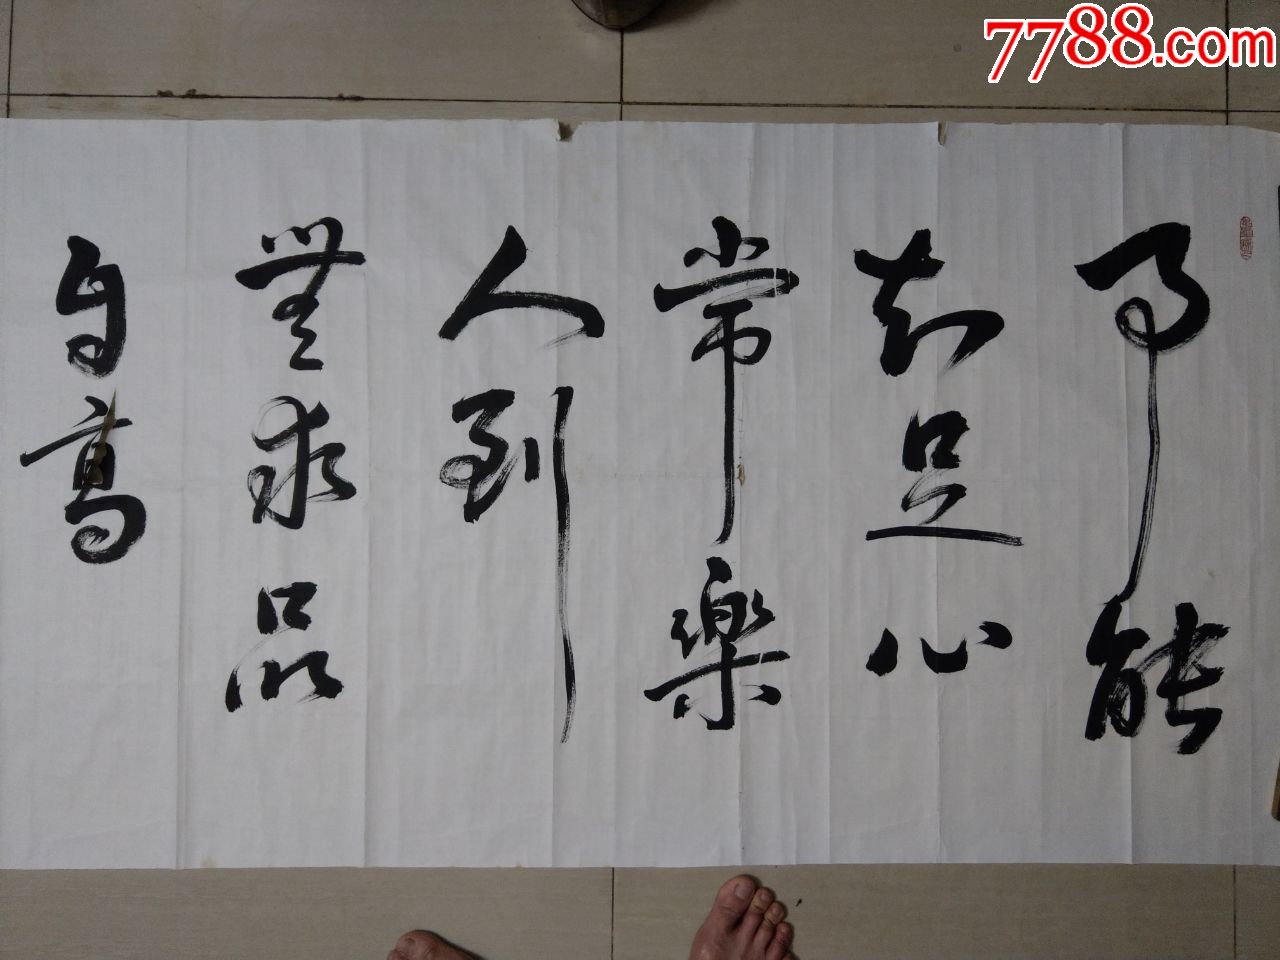 7788.com
事能
知足心
常樂
人到
無求品
自高